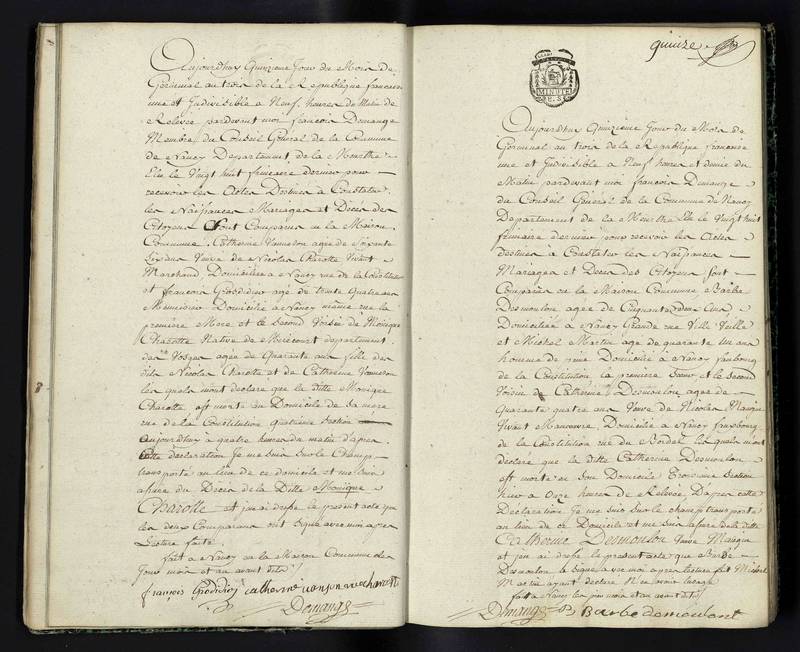 Aujourdhuy Quinzieme Jour du Mois de
Germinal an trois de la Republique francoise
une et Indivisible a Neuf heures du Matin de
Relevée pardevant moi francois Demange
Membre du Conseil General de la Commune
de Nancy Departement de la Meurthe
Elu le Vingt huit frimaire dernier pour
recevoir les Actes Destines a Constater
les Naissances Mariages et Décès des
Citoyens Sont Comparus en la Maison
Commune. Catherine agée de Soixante
Veuve de Nicolas Charotte Vivant
Marchand Domiciliée a Nancy rue de la Constitution
et francois Grodidier agé de trente quatre ans
Menuisier Domicilié a Nancy même rue la
première Mere et le Second Voisin de Monique
Charotte Native de Mirecourt departement
des Vosges agée de Quarante ans fille des
dits Nicolas Charotte et de Catherine
les quels m'ont declaré que la ditte Monique
Charotte est morte au Domicile de Sa mere
rue de la Constitution quatrieme Section
aujourdhuy à quatre heures du matin d'apres
Cette declaration Je me Suis Sur le Champ
transporté au lieu de ce domicile et me Suis
assuré du Décès de la Ditte Monique
Charotte et jai dressé le present acte que
les deux Comparans ont Signé avec moi apres
Lecture faite.
fait a Nancy en la Maison Commune les
Jour mois et an avant dits
françois Grodidier catherine charotte
Demange
quinze
MINUTE
Aujourdhuy Quinzieme Jour du Mois de
Germinal an trois de la Republique francoise
une et Indivisible a Neuf heures et demie du
Matin pardevant moi francois Demange
du Conseil Général de la Commune de Nancy
Departement de la Meurthe Elu le Vingt huit
frimaire dernier pour recevoir les Actes
destines a Constater les Naissances
Mariages et Décès des Citoyens, Sont
Comparus en la Maison Commune, Barbe
Desmoulon agée de Cinquante deux Ans
Domiciliée a Nancy Grande rue Ville Vieille
et Michel Martin agé de quarante un ans
homme de peine Domicilié à Nancy fauxbourg
de la Constitution la premiere Sœur, et le Second
Voisin de Catherine Desmoulon, agée de
Quarante quatre ans Veuve de Nicolas Mangin
Vivant Manoeuvre, Domiciliée a Nancy fauxbourg
de la Constitution rue du Bordet les quels m'ont
déclaré que la ditte Catherine Desmoulon
est morte en Son Domicile Troisieme Section
hier a Onze heures de Relevée D'apres cette
Declaration Je me Suis Sur le champ transporté
au lieu de ce Domicile et me Suis assuré de la ditte
Catherine Desmoulon Veuve Mangin
et jai dressé le present acte que Barbe
Desmoulon a Signé avec moi apres lecture fait Michel
Martin ayant declaré N'en avoir l'usage
fait a Nancy les jour mois et an avant dits
Demange Barbe demoulont